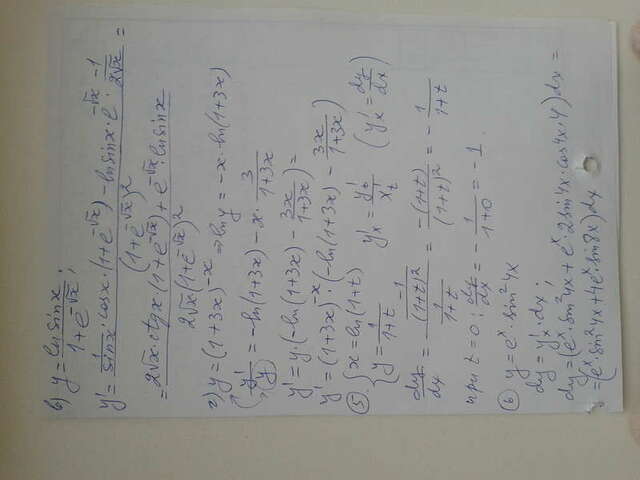 в) y = ln sin x / (1+e^(-√x)) ;
y' = (1/sin x · cos x · (1+e^(-√x)) - ln sin x · e^(-√x) · (-1)/(2√x)) / (1+e^(-√x))^2 =
= (2√x · ctg x (1+e^(-√x)) + e^(-√x) · ln sin x) / (2√x (1+e^(-√x))^2)
г) y = (1+3x)^(-x) ⇒ ln y = -x · ln(1+3x)
y'/y = -ln(1+3x) - x · 3/(1+3x)
y' = y · (-ln(1+3x) - 3x/(1+3x)) =
y' = (1+3x)^(-x) · (-ln(1+3x) - 3x/(1+3x))
⑤ { x = ln(1+t) y = 1/(1+t) y'x = y't/x't (y'x = dy/dx)
dy/dx = - (-1/(1+t)^2)/(1/(1+t)) = -(1+t)/(1+t)^2 = - 1/(1+t)
при t=0 : dy/dx = - 1/(1+0) = -1.
⑥ y = e^x · sin^2 4x
dy = y'x · dx ;
dy = (e^x · sin^2 4x + e^x · 2 sin 4x · cos 4x · 4) dx =
= (e^x · sin^2 4x + 4e^x · sin 8x) dx